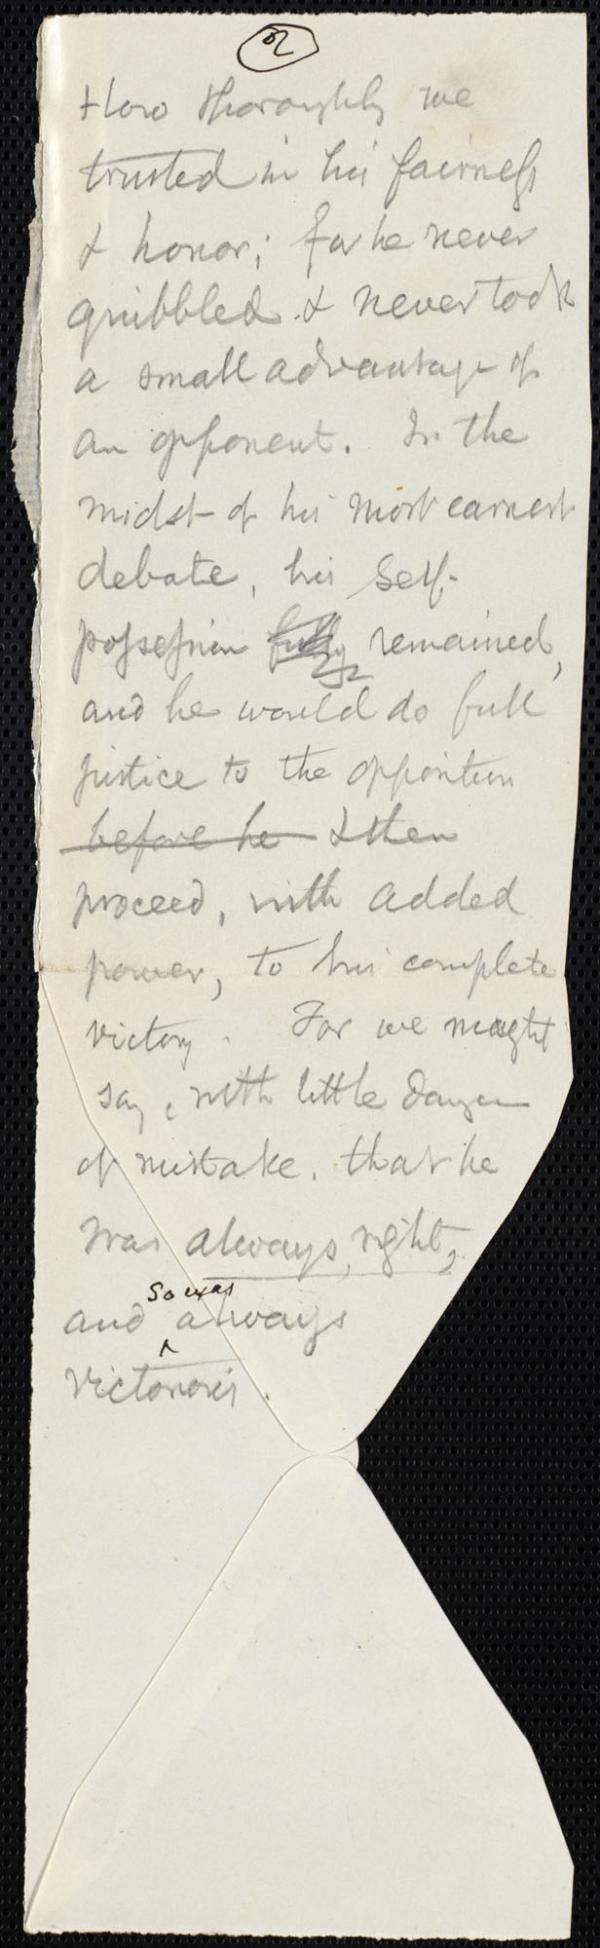 2
How thoroughly we
trusted in his fairness
& honor; for he never
quibbled & never took
a small advantage of
an opponent. In the
midst of his most earnest
debate, his self-
possession fully remained,
and he would do full
justice to the opposition
before he & then
proceed, with added
power, to his complete
victory. For we might
say, with little danger
of mistake, that he
was always right,
so was
and always
victorious.